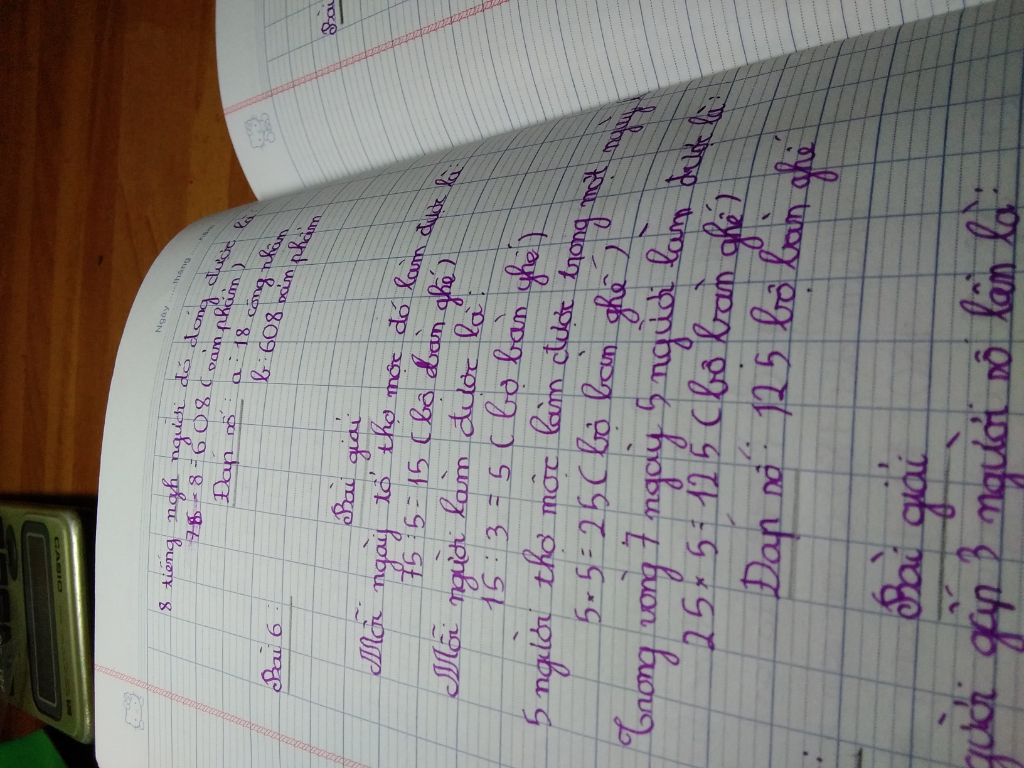 Bài
Ngày ......tháng
8 tiếng ngh người đó đóng được là
78 × 8 = 608 (sản phẩm)
Đáp số: a: 18 công nhân
b: 608 sản phẩm
Bài 6:
Bài giải
Mỗi ngày tổ thợ mộc đó làm được là:
75 : 5 = 15 (bộ bàn ghế)
Mỗi người làm được là:
15 : 3 = 5 (bộ bàn ghế)
5 người thợ mộc làm được trong một ngày
5 × 5 = 25 (bộ bàn ghế)
Trong vòng 7 ngày 5 người làm được là:
25 × 5 = 125 (bộ bàn ghế)
Đáp số: 125 bộ bàn ghế
Bài giải
người gấp 3 người số lần là:
CASIO